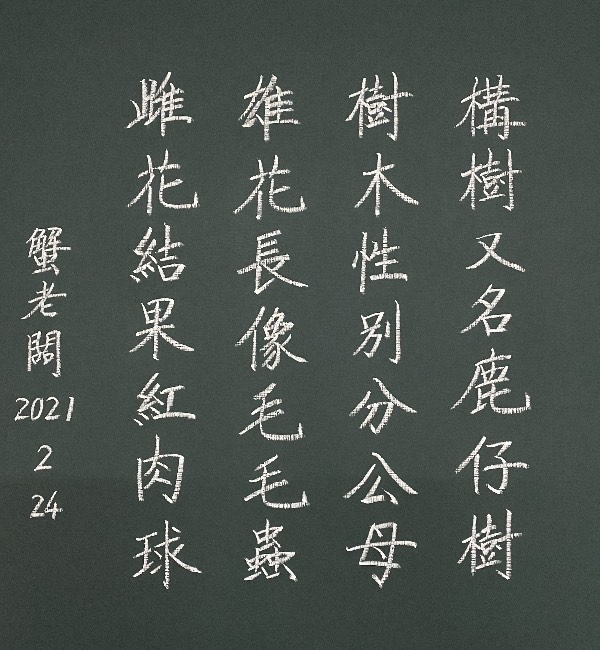 構樹又名鹿仔樹
樹木性別分公母
雄花長像毛毛蟲
雌花結果紅肉球
蟹老闆
2021
2
24